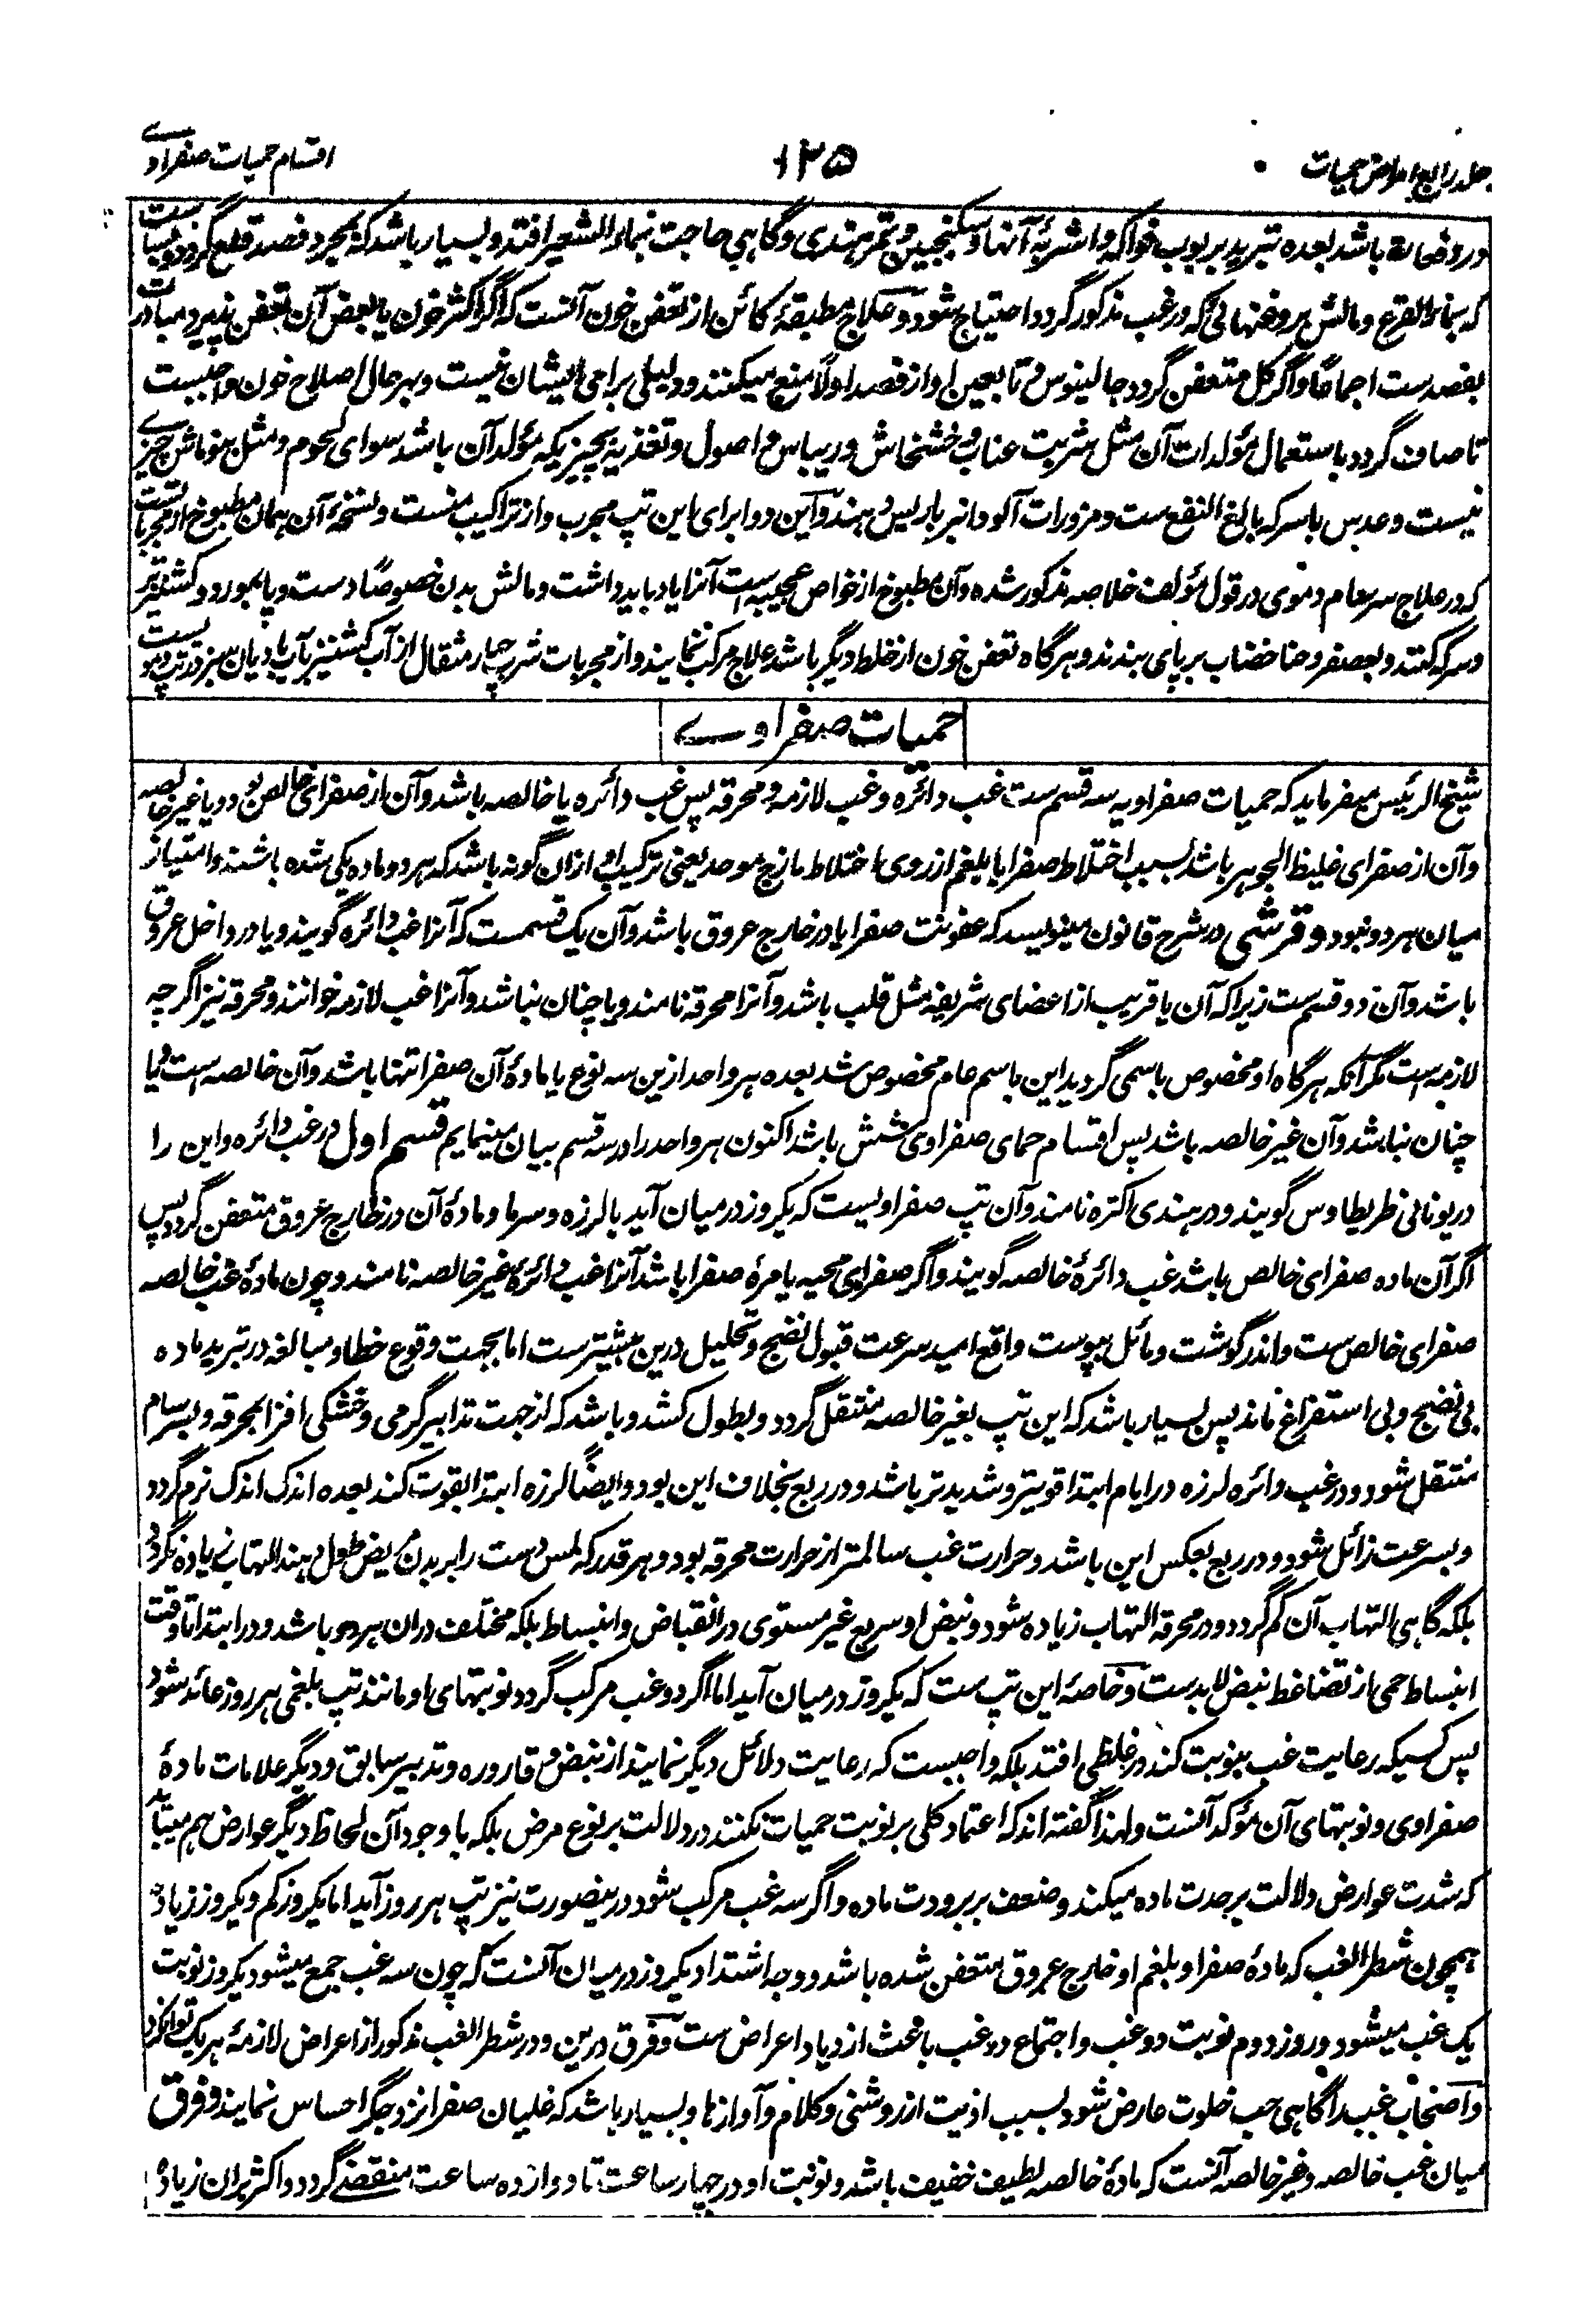 جلد رابع امراض حمیات
۱۳۵
اقسام حمیات صفراوے
در روغنها باشد بعده تبرید بربوب فواکه و اشربهٔ آنها و سکنجبین و تمر هندی و گاهی حاجت بماء الشعیر افتد و بسیار باشد که بمجرد فصد قلع گردد و بساست
که بماء القرع و مالش بروغنهائی که در غب مذکور گردد احتیاج شود و علاج مطبقهٔ کائن از تعفن خون آنست که اگر اکثر خون یا بعض آن تعفن پذیرد مبادرت
بفصد ست اجماعًا و اگر کل متعفن گردد جالینوس و تابعین او از فصد اولًا منع میکنند و دلیلی برای ایشان نیست و بهر حال اصلاح خون واجبست
تا صاف گردد باستعمال مؤلدات آن مثل شربت عناب و خشخاش و ریباس و اصول و تغذیه بچیزیکه مؤلد آن باشد سوای لحوم و مثل بنوماش چیزے
نیست و عدس با سرکه بالغ النفع ست و مزورات آلو و انبرباریس و هندوآین دوا برای این تپ مجرب و از تراکیب منست و نسخهٔ آن همان مطبوخ از مجربات
که در علاج سرسام دموی در قول مؤلف خلاصه مذکور شده و آن مطبوخ از خواص عجیبه است آنرا یاد باید داشت و مالش بدن خصوصًا دست و پا بمورد و کشنیز تر
و سرکه کنند و بعصفر و حنا خضاب بر پای بندند و هرگاه تعفن خون از خلط دیگر باشد علاج مرکب نمایند و از مجربات شرب چهار مثقال از آب کشنیز بآب بادیان سبز
حمیات صفراوے
شیخ الرئیس میفرماید که حمیات صفراویه سه قسم ست غب دائره و غب لازمه و محرقه پس غب دائره یا خالصه باشد و آن از صفرای خالص بود و یا غیر خالصه
و آن از صفرای غلیظ الجوهر باشد بسبب اختلاط صفرا با بلغم از روی اختلاط مازج موحد یعنی ترکیب او ازان گونه باشد که هر دو ماده یکی شده باشند و امتیاز
میان هر دو نبود و قرشی در شرح قانون مینویسد که عفونت صفرا یا در خارج عروق باشد و آن یک قسمست که آنرا غب دائره گویند و یا در داخل عروق
باشد و آن دو قسم ست زیرا که آن یا قریب از اعضای شریفه مثل قلب باشد و آنرا محرقه نامند و یا چنان نباشد و آنرا غب لازمه خوانند و محرقه نیز اگرچه
لازمه است مگر آنکه هرگاه او مخصوص باسمی گردید این باسم عام مخصوص شد بعده هر واحد ازین سه نوع یا مادهٔ آن صفرا تنها باشد و آن خالصه است و یا
چنان نباشد و آن غیر خالصه باشد پس اقسام حمای صفراوی شش باشد اکنون هر واحد را در سه قسم بیان مینمایم قسم اول در غب دائره و این را
در یونانی طریطاوس گویند و در هندی اکتره نامند و آن تپ صفراویست که یکروز در میان آید با لرزه و سرما و مادهٔ آن در خارج عروق متعفن گردد پس
اگر آن ماده صفرای خالص باشد غب دائرهٔ خالصه گویند و اگر صفرای محیه یا مرهٔ صفرا باشد آنرا غب دائرهٔ غیر خالصه نامند و چون مادهٔ غب خالصه
صفرای خالص ست و اندر گوشت و مائل بپوست واقع امید سرعت قبول نضج و تحلیل درین بیشترست اما بجهت وقوع خطا و مبالغه در تبرید ماده
بی نضج و بی استفراغ ماند پس بسیار باشد که این تپ بغیر خالصه منتقل گردد و بطول کشد و باشد که از جهت تدابیر گرمی و خشکی افزا بمحرقه و بسرسام
منتقل شود و در غب دائره لرزه در ایام ابتدا قویتر و شدیدتر باشد و در ربع بخلاف این بود و ایضًا لرزه ابتدا بقوت کند بعده اندک اندک نرم گردد
و بسرعت زائل شود و در ربع بعکس این باشد و حرارت غب سالمتر از حرارت محرقه بود و هر قدر که لمس دست را بر بدن مریض طول دهند التهاب زیاده نگردد
بلکه گاهی التهاب آن کم گردد و در محرقه التهاب زیاده شود و نبض او سریع غیر مستوی در انقباض و انبساط بلکه مختلف دران هر دو باشد و در ابتدا تا وقت
انبساط حمی از تضاغط نبض لابدست و خاصهٔ این تپ ست که یکروز در میان آید اما اگر دو غب مرکب گردد نوبتهای او مانند تپ بلغمی هر روز عائد شود
پس کسیکه رعایت غب بنوبت کند در غلطی افتد بلکه واجبست که رعایت دلائل دیگر نمایند از نبض و قاروره و تدبیر سابق و دیگر علامات مادهٔ
صفراوی و نوبتهای آن مؤکد آنست و لهذا گفته اند که اعتماد کلی بر نوبت حمیات نکنند در دلالت بر نوع مرض بلکه با وجود آن لحاظ دیگر عوارض هم میباید
که شدت عوارض دلالت بر حدت ماده میکند و ضعف بر برودت ماده و اگر سه غب مرکب شود درینصورت نیز تپ هر روز آید اما یکروز کم و یکروز زیاده
همچون شطر الغب که مادهٔ صفرا و بلغم او خارج عروق متعفن شده باشد و وجه اشتداد یکروز در میان آنست که چون سه غب جمع میشود یکروز نوبت
یک غب میشود و روز دوم نوبت دو غب و اجتماع دو غب باعث ازدیاد اعراض ست و فرق درین و در شطر الغب مذکور از اعراض لازمهٔ هر یک توان کرد
و اصحاب غب را گاهی حب خلوت عارض شود بسبب اذیت از روشنی و کلام و آوازها و بسیار باشد که غلیان صفرا نزد جگر احساس نمایند و فرق
میان غب خالصه و غیر خالصه آنست که مادهٔ خالصه لطیف خفیف باشد و نوبت او در چهار ساعت تا دوازده ساعت منقضے گردد و اکثر بران زیاده